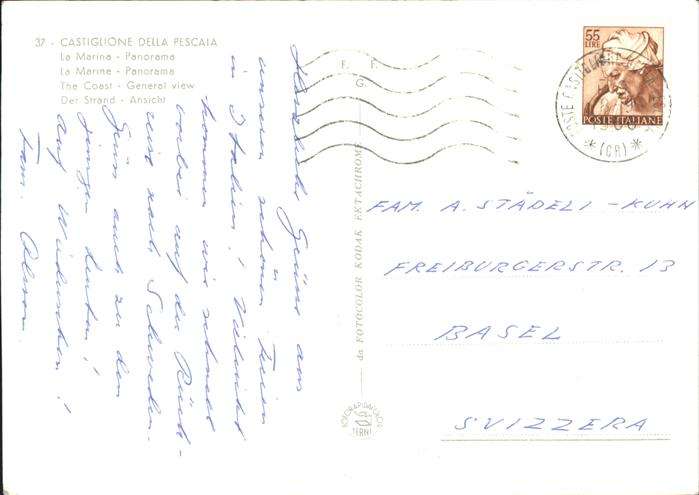 37 - CASTIGLIONE DELLA PESCAIA
La Marina - Panorama
La Marine - Panorama
The Coast - General view
Der Strand - Ansicht
Herzliche Grüsse aus
unseren schönen Ferien
in Italien! Vielleicht
kommen wir schnell
vorbei auf der Rück-
reise nach Schweden.
Grüss auch zu den
jungen Leuten!
Auf Wiedersehen!
Fam.
F. F.
G.
55
LIRE
POSTE ITALIANE
(GR)
da FOTOCOLOR KODAK EKTACHROME
TERNI
FAM. A. STÄDELI-KUHN
FREIBURGERSTR. 13
BASEL
SVIZZERA